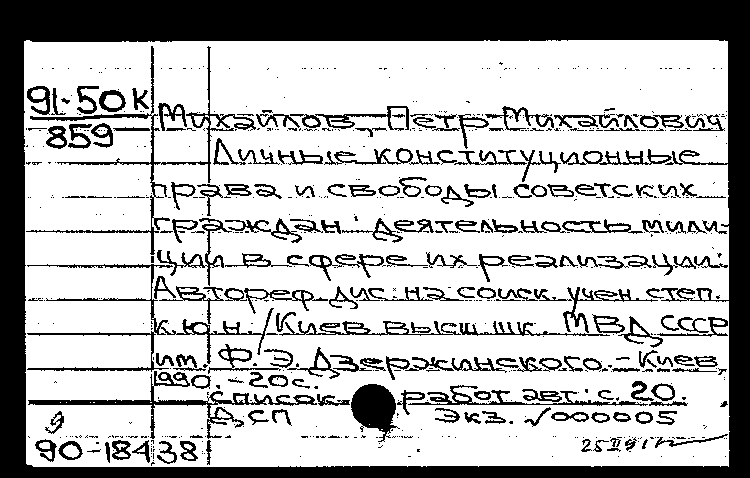 91-50К
859
Михайлов, Петр Михайлович
Личные конституционные
права и свободы советских
граждан: деятельность мили-
ции в сфере их реализации:
Автореф. дис. на соиск. учен. степ.
к.ю.н. / Киев высш. шк. МВД СССР
им. Ф. Э. Дзержинского. - Киев,
1990. - 20с.
список работ авт.: с. 20.
ДСП Экз. №000005
9
90-18438
25 II 91